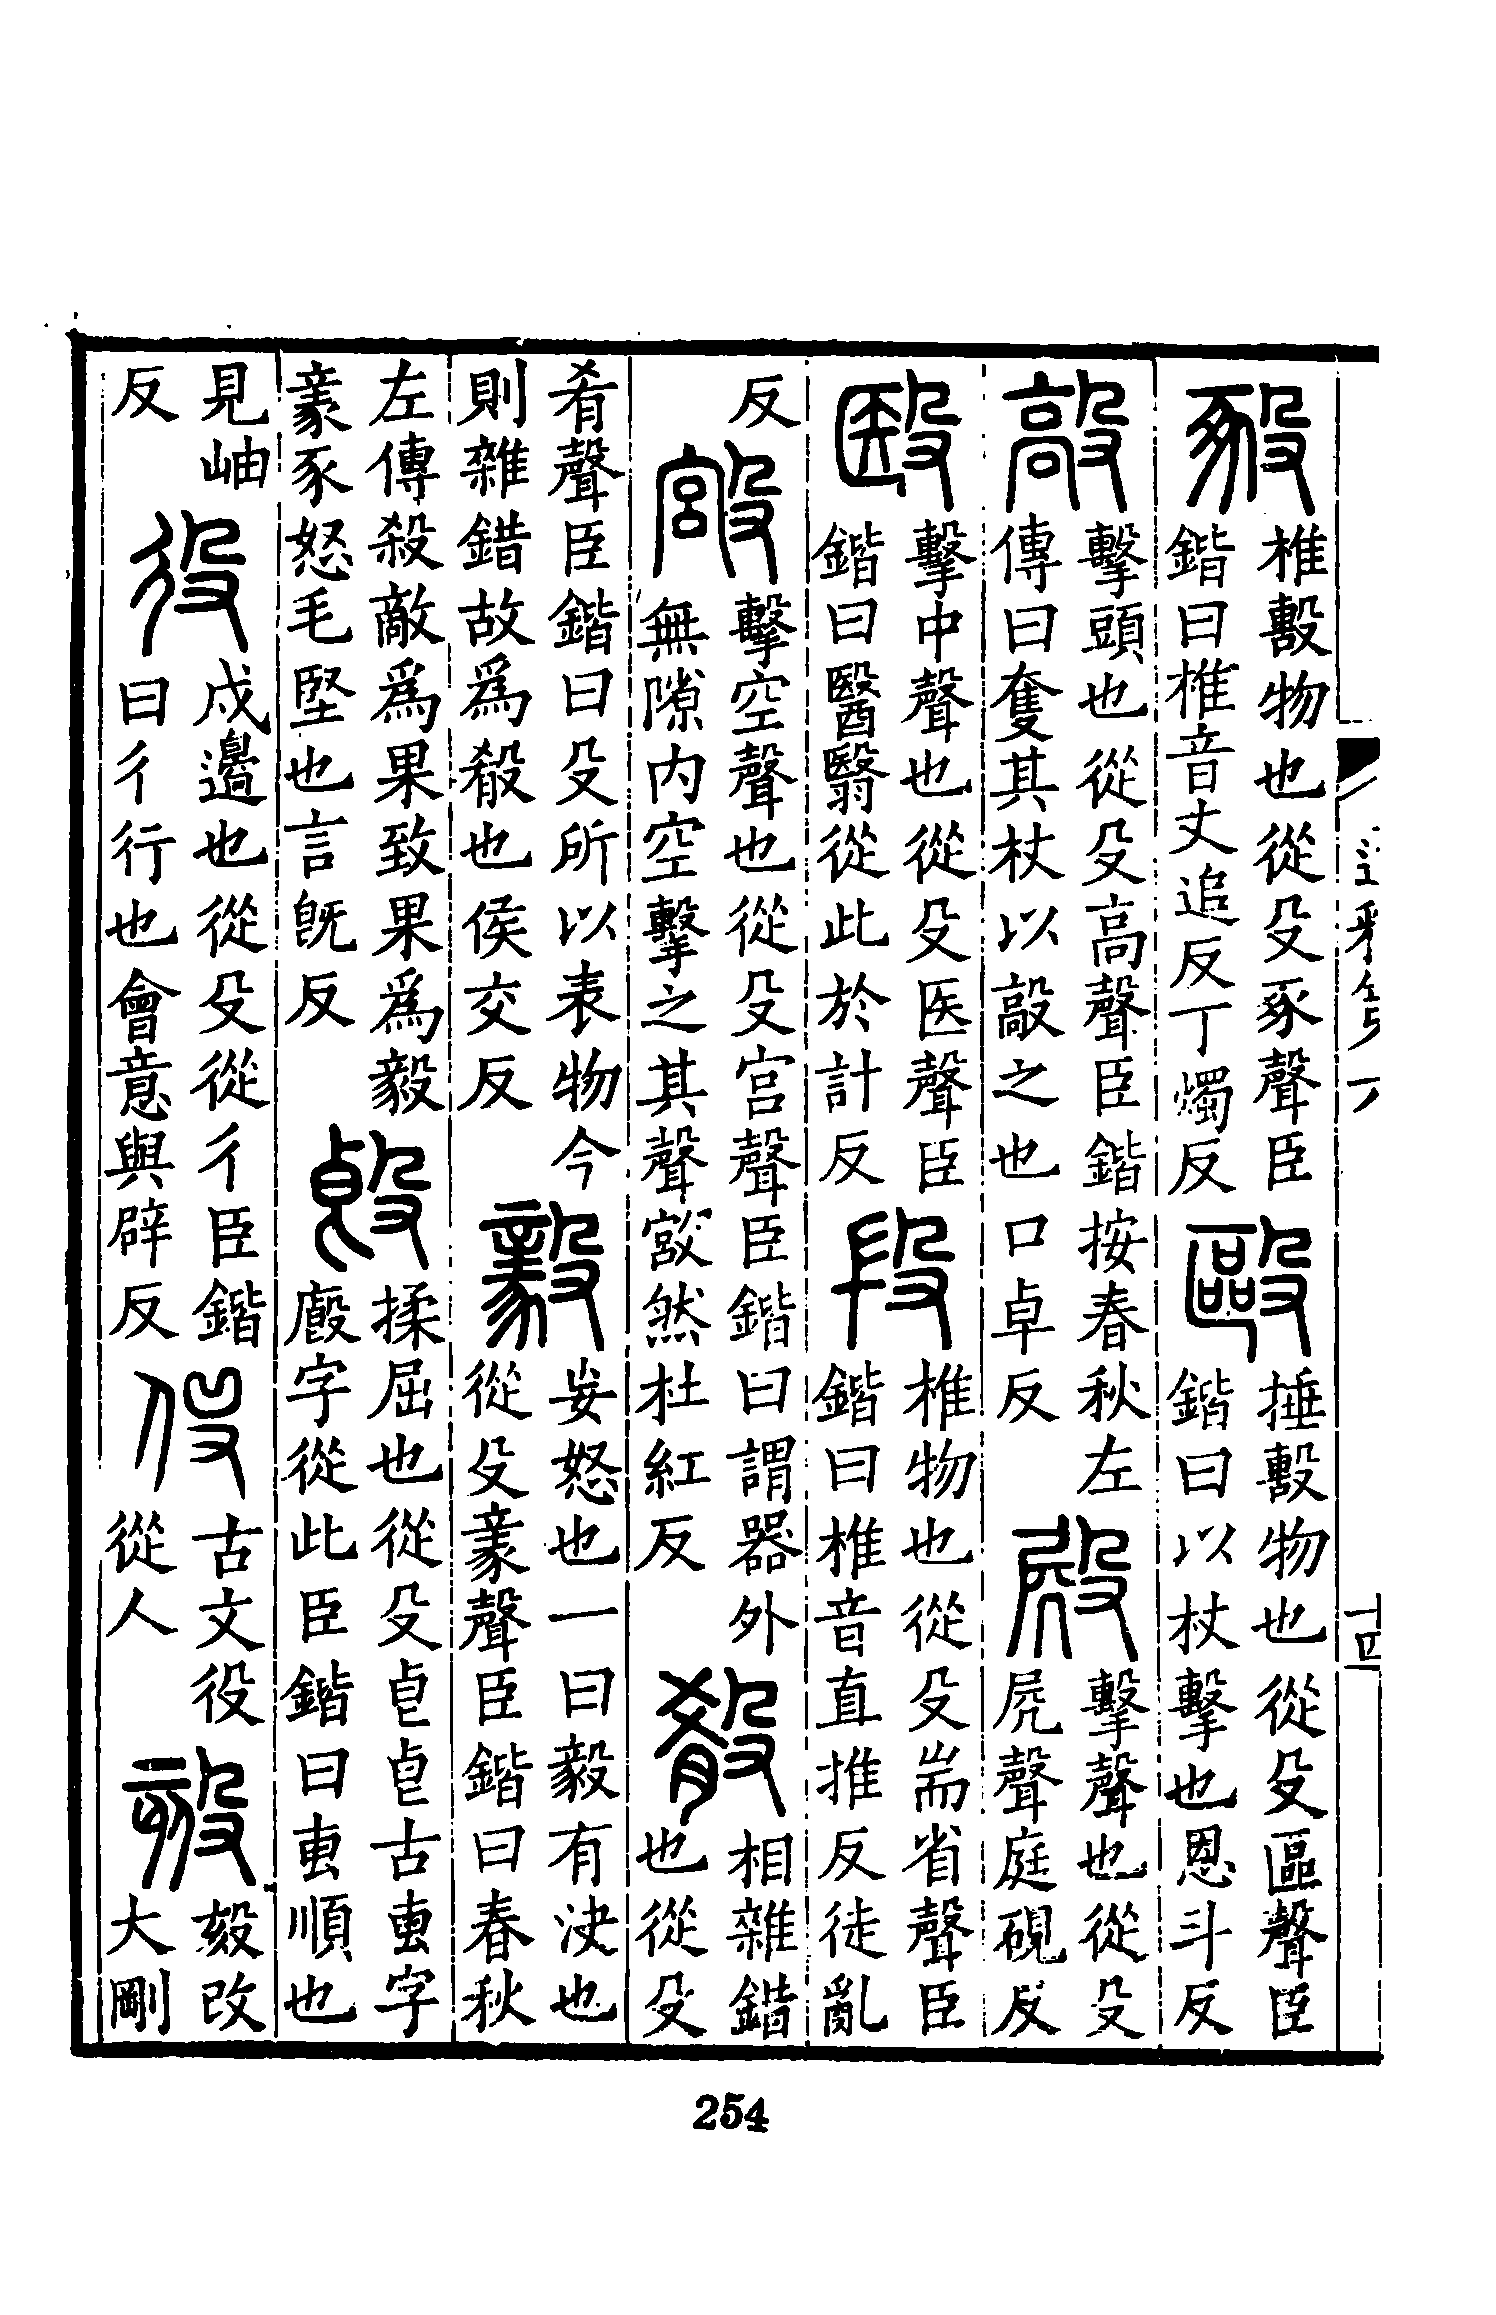 𣪏
椎毄物也從殳豖聲臣
鍇曰椎音丈追反丁燭反
毆
捶毄物也從殳區聲臣
鍇曰以杖擊也恩斗反
毃
擊頭也從殳高聲臣鍇按春秋左
傳曰奪其杖以敲之也口卓反
殿
擊聲也從殳
屍聲庭硯反
殹
擊中聲也從殳医聲臣
鍇曰醫翳從此於計反
段
椎物也從殳耑省聲臣
鍇曰椎音直推反徒亂
反
㲁
擊空聲也從殳宮聲臣鍇曰謂器外
無隙内空擊之其聲㲁然杜紅反
殽
相雜錯
也從殳
肴聲臣鍇曰殳所以表物今
則雜錯故爲殽也侯交反
毅
妄怒也一曰毅有決也
從殳豙聲臣鍇曰春秋
左傳殺敵爲果致果爲毅
豙豕怒毛堅也言旣反
𣪘
揉屈也從殳皀皀古叀字
廏字從此臣鍇曰叀順也
見岫
反
役
戍邊也從殳從彳臣鍇
曰彳行也會意與辟反
伇
古文役
從人
㱾
㱾改
大剛
254